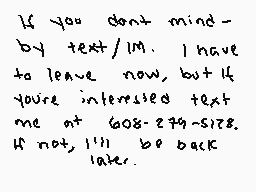 If you dont mind -
by text/IM. I have
to leave now, but if
you're interested text
me at 608-279-5128.
If not, I'll be back
later.